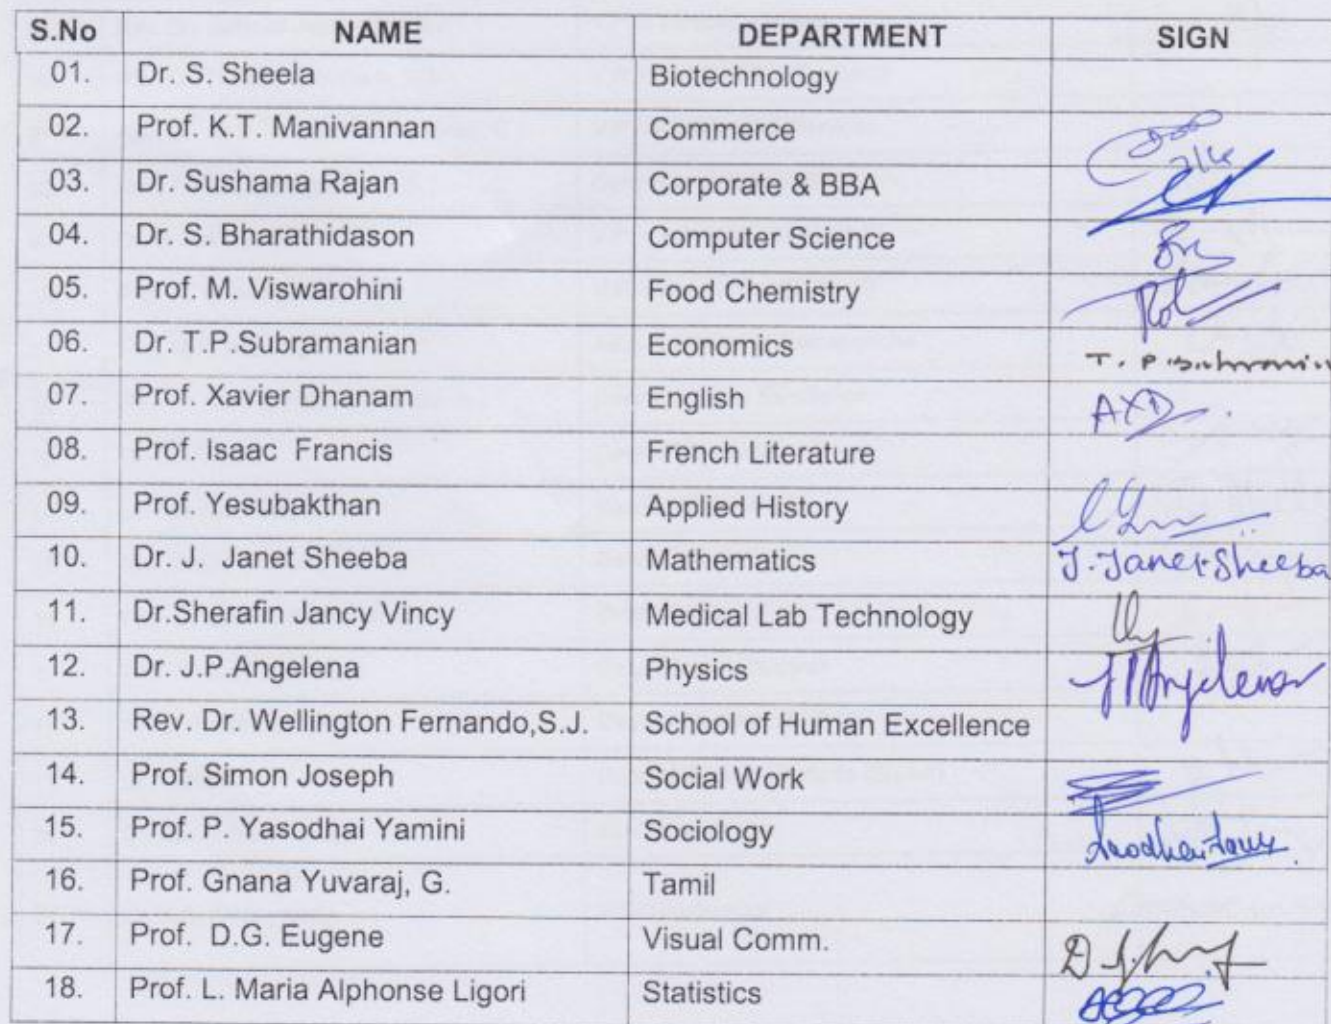 S.No NAME DEPARTMENT SIGN
01. Dr. S. Sheela Biotechnology
02. Prof. K.T. Manivannan Commerce
03. Dr. Sushama Rajan Corporate & BBA
04. Dr. S. Bharathidason Computer Science
05. Prof. M. Viswarohini Food Chemistry
06. Dr. T.P.Subramanian Economics
07. Prof. Xavier Dhanam English AXD
08. Prof. Isaac Francis French Literature
09. Prof. Yesubakthan Applied History
10. Dr. J. Janet Sheeba Mathematics J. Janet Sheeba
11. Dr.Sherafin Jancy Vincy Medical Lab Technology
12. Dr. J.P.Angelena Physics JPAngelena
13. Rev. Dr. Wellington Fernando,S.J. School of Human Excellence
14. Prof. Simon Joseph Social Work
15. Prof. P. Yasodhai Yamini Sociology
16. Prof. Gnana Yuvaraj, G. Tamil
17. Prof. D.G. Eugene Visual Comm.
18. Prof. L. Maria Alphonse Ligori Statistics